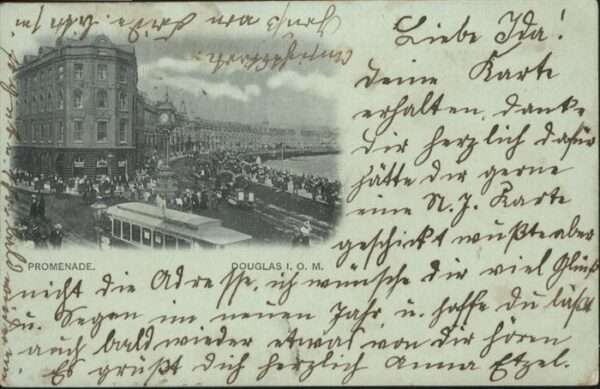 Liebe Ida!
Deine Karte
erhalten, danke
dir herzlich dafür
hätte dir gerne
eine N. J. Karte
geschickt wußte aber
PROMENADE.
DOUGLAS I. O. M.
nicht die Adresse, ich wünsche dir viel Glück
u. Segen im neuen Jahr u. hoffe du läßt
auch bald wieder etwas von dir hören
Es grüßt dich herzlich Anna Etzel.